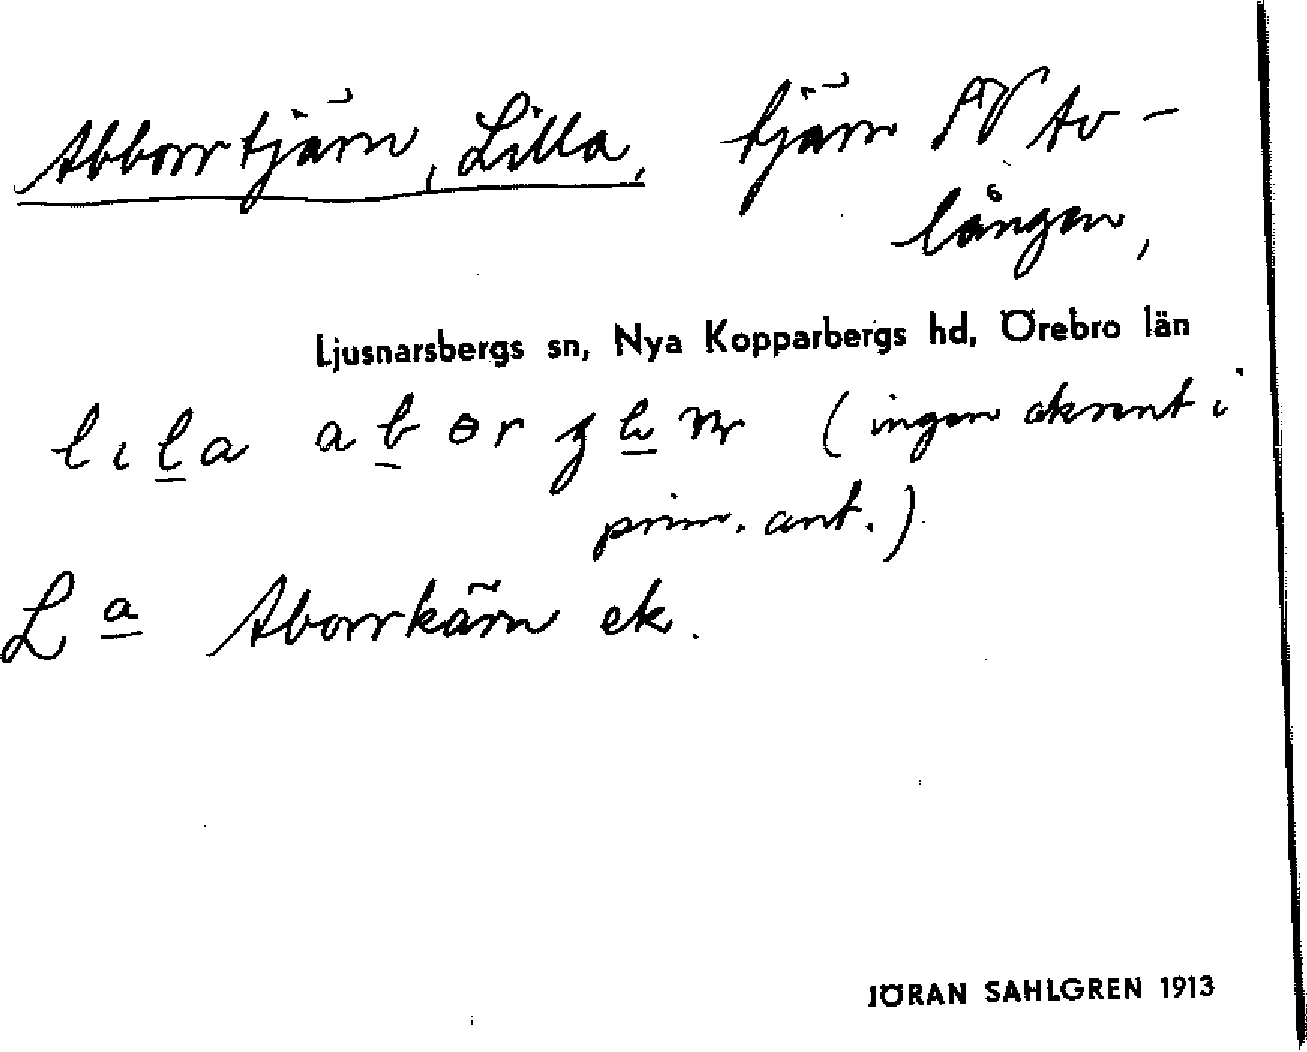 Abborrtjärn, Lilla, tjärn SV Av-
lången,
Ljusnarsbergs sn, Nya Kopparbergs hd, Örebro län
(ingen aksent i
prim. ant.)
L a Aborrkärn ek.
JÖRAN SAHLGREN 1913